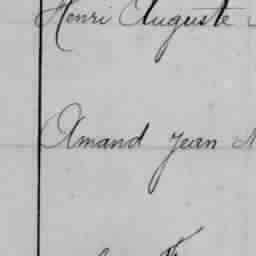 Henri Auguste
Amand Jean